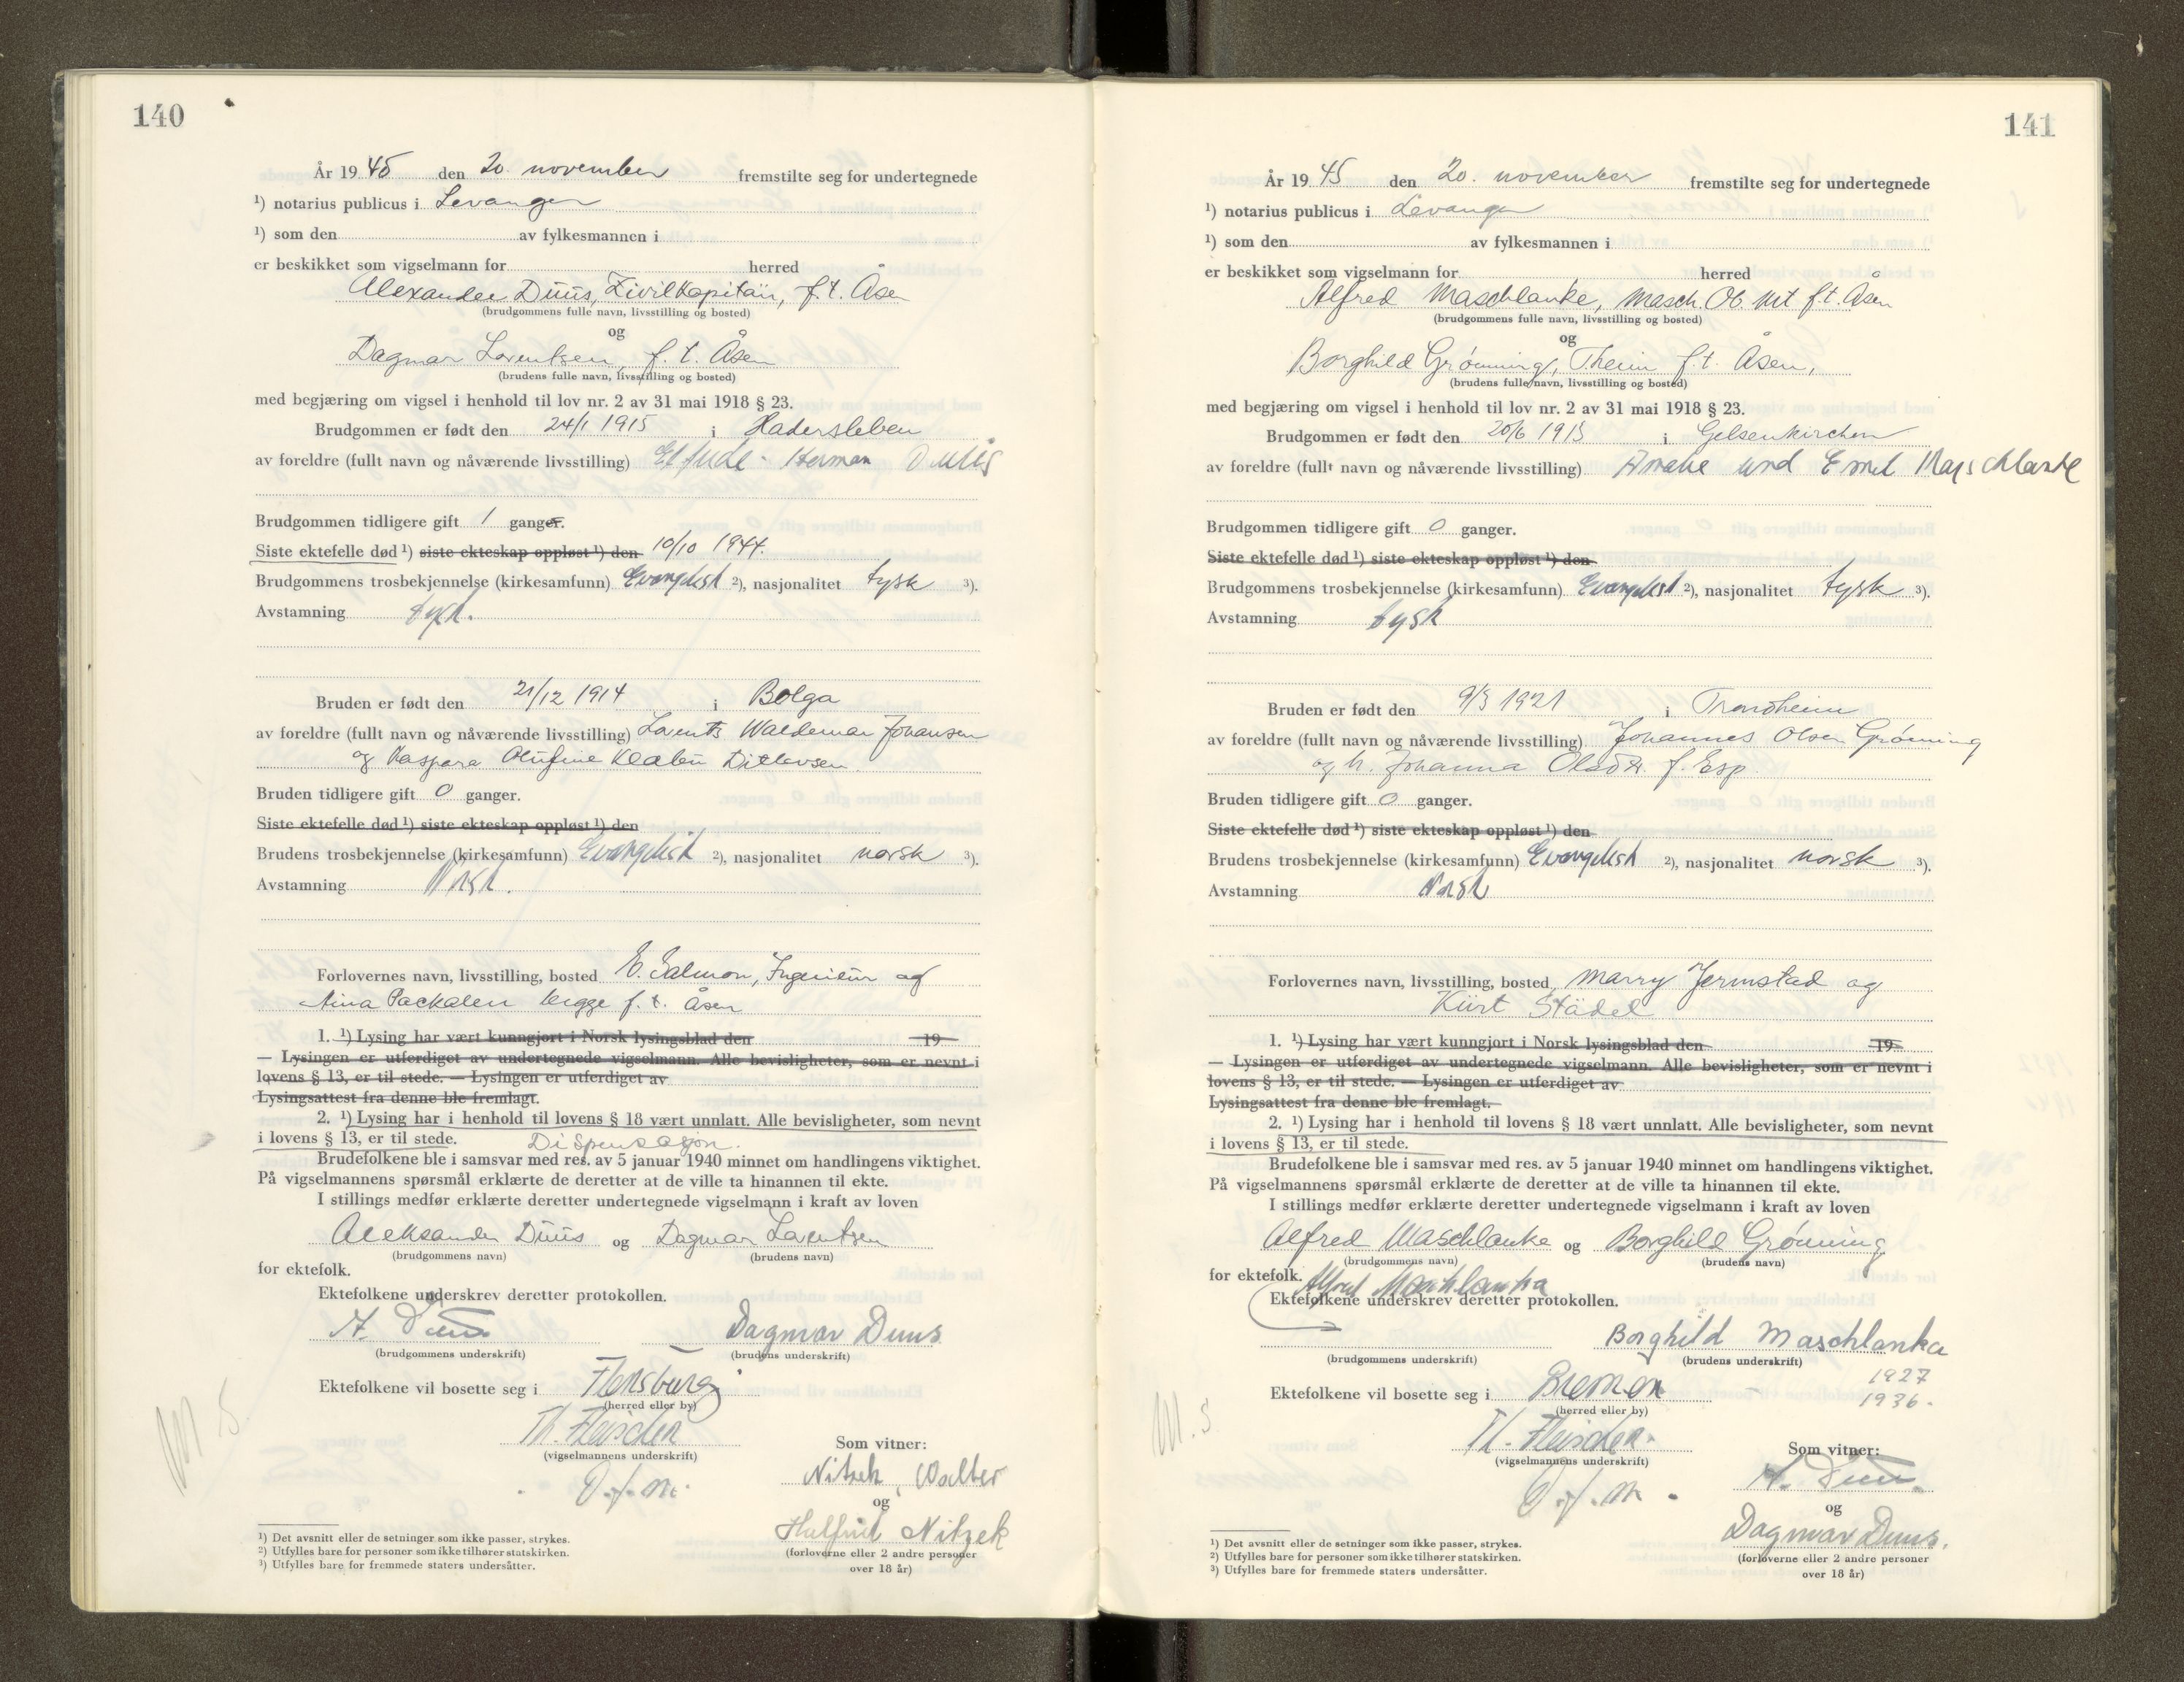 140
År 19 45 den 20. november fremstilte seg for undertegnede
¹) notarius publicus i Levanger
¹) som den av fylkesmannen i
er beskikket som vigselmann for herred
Alexander Duus, Zivilkapitän, f.t. Åsen
(brudgommens fulle navn, livsstilling og bosted)
og
Dagmar Lorentsen, f. t. Åsen
(brudens fulle navn, livsstilling og bosted)
med begjæring om vigsel i henhold til lov nr. 2 av 31 mai 1918 § 23.
Brudgommen er født den 24/1 1915 i Hadersleben
av foreldre (fullt navn og nåværende livsstilling) Herman Duus
Brudgommen tidligere gift 1 ganger.
Siste ektefelle død ¹) siste ekteskap oppløst ¹) den 10/10 1944.
Brudgommens trosbekjennelse (kirkesamfunn) Evangelisk ²), nasjonalitet tysk ³).
Avstamning tysk.
Bruden er født den 21/12 1914 i Bolga
av foreldre (fullt navn og nåværende livsstilling) Lorents Waldemar Johansen
og Kaspara Olufine Ditlevsen.
Bruden tidligere gift 0 ganger.
Siste ektefelle død ¹) siste ekteskap oppløst ¹) den
Brudens trosbekjennelse (kirkesamfunn) Evangelisk ²), nasjonalitet norsk ³).
Avstamning Norsk.
Forlovernes navn, livsstilling, bosted E. Salmon, Ingenieur og
Aina Packalen begge f. t. Åsen
1. ¹) Lysing har vært kunngjort i Norsk lysingsblad den 19
— Lysingen er utferdiget av undertegnede vigselmann. Alle bevisligheter, som er nevnt i
lovens § 13, er til stede. — Lysingen er utferdiget av
Lysingsattest fra denne ble fremlagt.
2. ¹) Lysing har i henhold til lovens § 18 vært unnlatt. Alle bevisligheter, som nevnt
i lovens § 13, er til stede. Dispensasjon.
Brudefolkene ble i samsvar med res. av 5 januar 1940 minnet om handlingens viktighet.
På vigselmannens spørsmål erklærte de deretter at de ville ta hinannen til ekte.
I stillings medfør erklærte deretter undertegnede vigselmann i kraft av loven
Aleksander Duus og Dagmar Lorentsen
(brudgommens navn) (brudens navn)
for ektefolk.
Ektefolkene underskrev deretter protokollen.
A. Duus Dagmar Duus
(brudgommens underskrift) (brudens underskrift)
Ektefolkene vil bosette seg i Flensburg
(herred eller by)
Th. Fleischer
(vigselmannens underskrift)
Som vitner:
Nitzek, Walter
og
Nitzek
(forloverne eller 2 andre personer
over 18 år)
¹) Det avsnitt eller de setninger som ikke passer, strykes.
²) Utfylles bare for personer som ikke tilhører statskirken.
³) Utfylles bare for fremmede staters undersåtter.
141
År 19 45 den 20. november fremstilte seg for undertegnede
¹) notarius publicus i Levanger
¹) som den av fylkesmannen i
er beskikket som vigselmann for herred
Alfred Maschlanke, Masch. Ob. Mt f.t. Åsen
(brudgommens fulle navn, livsstilling og bosted)
og
Borghild Grønning, Theim f.t. Åsen,
(brudens fulle navn, livsstilling og bosted)
med begjæring om vigsel i henhold til lov nr. 2 av 31 mai 1918 § 23.
Brudgommen er født den 20/6 1915 i Gelsenkirchen
av foreldre (fullt navn og nåværende livsstilling) Amalie und Emil Maschlanke
Brudgommen tidligere gift 0 ganger.
Siste ektefelle død ¹) siste ekteskap oppløst ¹) den
Brudgommens trosbekjennelse (kirkesamfunn) Evangelisk ²), nasjonalitet tysk ³).
Avstamning tysk
Bruden er født den 9/3 1921 i Trondheim
av foreldre (fullt navn og nåværende livsstilling) Johannes Olsen Grønning
og h. Johanna Olsdtr. f. Esp.
Bruden tidligere gift 0 ganger.
Siste ektefelle død ¹) siste ekteskap oppløst ¹) den
Brudens trosbekjennelse (kirkesamfunn) Evangelisk ²), nasjonalitet norsk ³).
Avstamning Norsk
Forlovernes navn, livsstilling, bosted Marry Jermstad og
Kurt Städel
1. ¹) Lysing har vært kunngjort i Norsk lysingsblad den 19
— Lysingen er utferdiget av undertegnede vigselmann. Alle bevisligheter, som er nevnt i
lovens § 13, er til stede. — Lysingen er utferdiget av
Lysingsattest fra denne ble fremlagt.
2. ¹) Lysing har i henhold til lovens § 18 vært unnlatt. Alle bevisligheter, som nevnt
i lovens § 13, er til stede.
Brudefolkene ble i samsvar med res. av 5 januar 1940 minnet om handlingens viktighet.
På vigselmannens spørsmål erklærte de deretter at de ville ta hinannen til ekte.
I stillings medfør erklærte deretter undertegnede vigselmann i kraft av loven
Alfred Maschlanke og Borghild Grønning
(brudgommens navn) (brudens navn)
for ektefolk. Alfred Maschlanka
Ektefolkene underskrev deretter protokollen.
Borghild Maschlanka
(brudgommens underskrift) (brudens underskrift)
1927
Ektefolkene vil bosette seg i Bremen 1936.
(herred eller by)
Th. Fleischer
(vigselmannens underskrift)
Som vitner:
A. Duus.
og
Dagmar Duus.
(forloverne eller 2 andre personer
over 18 år)
¹) Det avsnitt eller de setninger som ikke passer, strykes.
²) Utfylles bare for personer som ikke tilhører statskirken.
³) Utfylles bare for fremmede staters undersåtter.